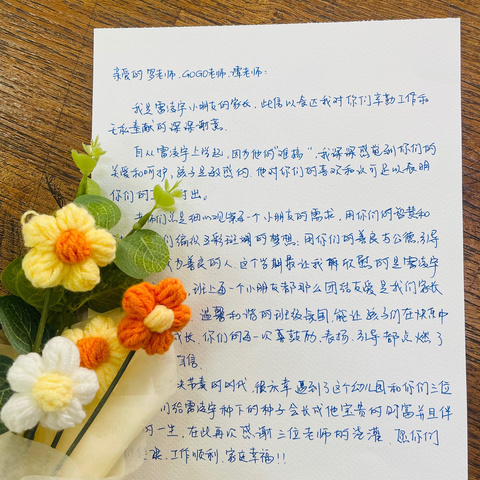 亲爱的罗老师、GOGO老师、谭老师:
我是雷浩宇小朋友的家长,此信以表达我对你们辛勤工作和
无私奉献的深深谢意.
自从雷浩宇上学起,因为他的"难搞",我深深感觉到你们的
关爱和呵护,孩子是敏感的,他对你们的喜欢和认可足以表明
你们的 付出.
们总是细心观察每一个小朋友的需求,用你们的智慧和
们编织了彩斑斓的梦想.用你们的善良与公德,引导
善良的人.这个学期最让我解欣慰的是雷浩宇
班上每一个小朋友都那么团结友爱是我们家长
温馨和谐的班级氛围,能让孩子们在快乐中
成长,你们的每一次鼓励、表扬、引导都点燃了
信.
快节奏的时代,很示幸遇到了这个幼儿园和你们三位
们给雷浩宇种下的种子会长成他宝贵的财富并且伴
的一生,在此再次感谢三位老师的浇灌.愿你们
康、工作顺利、家庭幸福!!